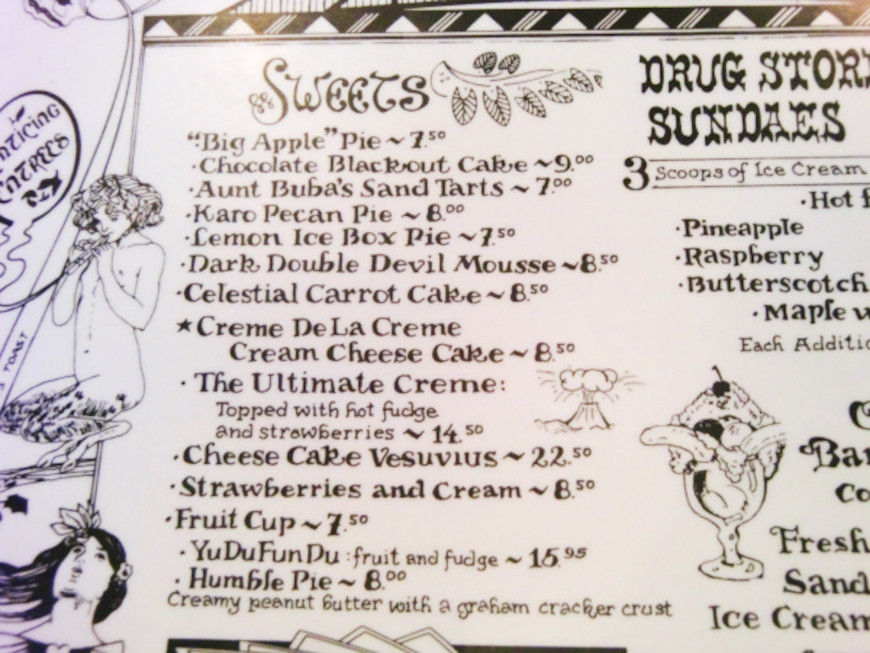 SWEETS
"Big Apple" Pie ~ 7.50
·Chocolate Blackout Cake ~ 9.00
·Aunt Buba's Sand Tarts ~ 7.00
·Karo Pecan Pie ~ 8.00
·Lemon Ice Box Pie ~ 7.50
·Dark Double Devil Mousse ~ 8.50
·Celestial Carrot Cake ~ 8.50
★Creme De La Creme
Cream Cheese Cake ~ 8.50
·The Ultimate Creme:
Topped with hot fudge
and strawberries ~ 14.50
·Cheese Cake Vesuvius ~ 22.50
·Strawberries and Cream ~ 8.50
·Fruit Cup ~ 7.50
·YuDuFunDu: fruit and fudge ~ 15.95
·Humble Pie ~ 8.00
Creamy peanut butter with a graham cracker crust
DRUG STOR
SUNDAES
3 Scoops of Ice Cream
·Hot
·Pineapple
·Raspberry
·Butterscotch
·Maple
Each
Fresh
Sand
Ice Cream
TOAST